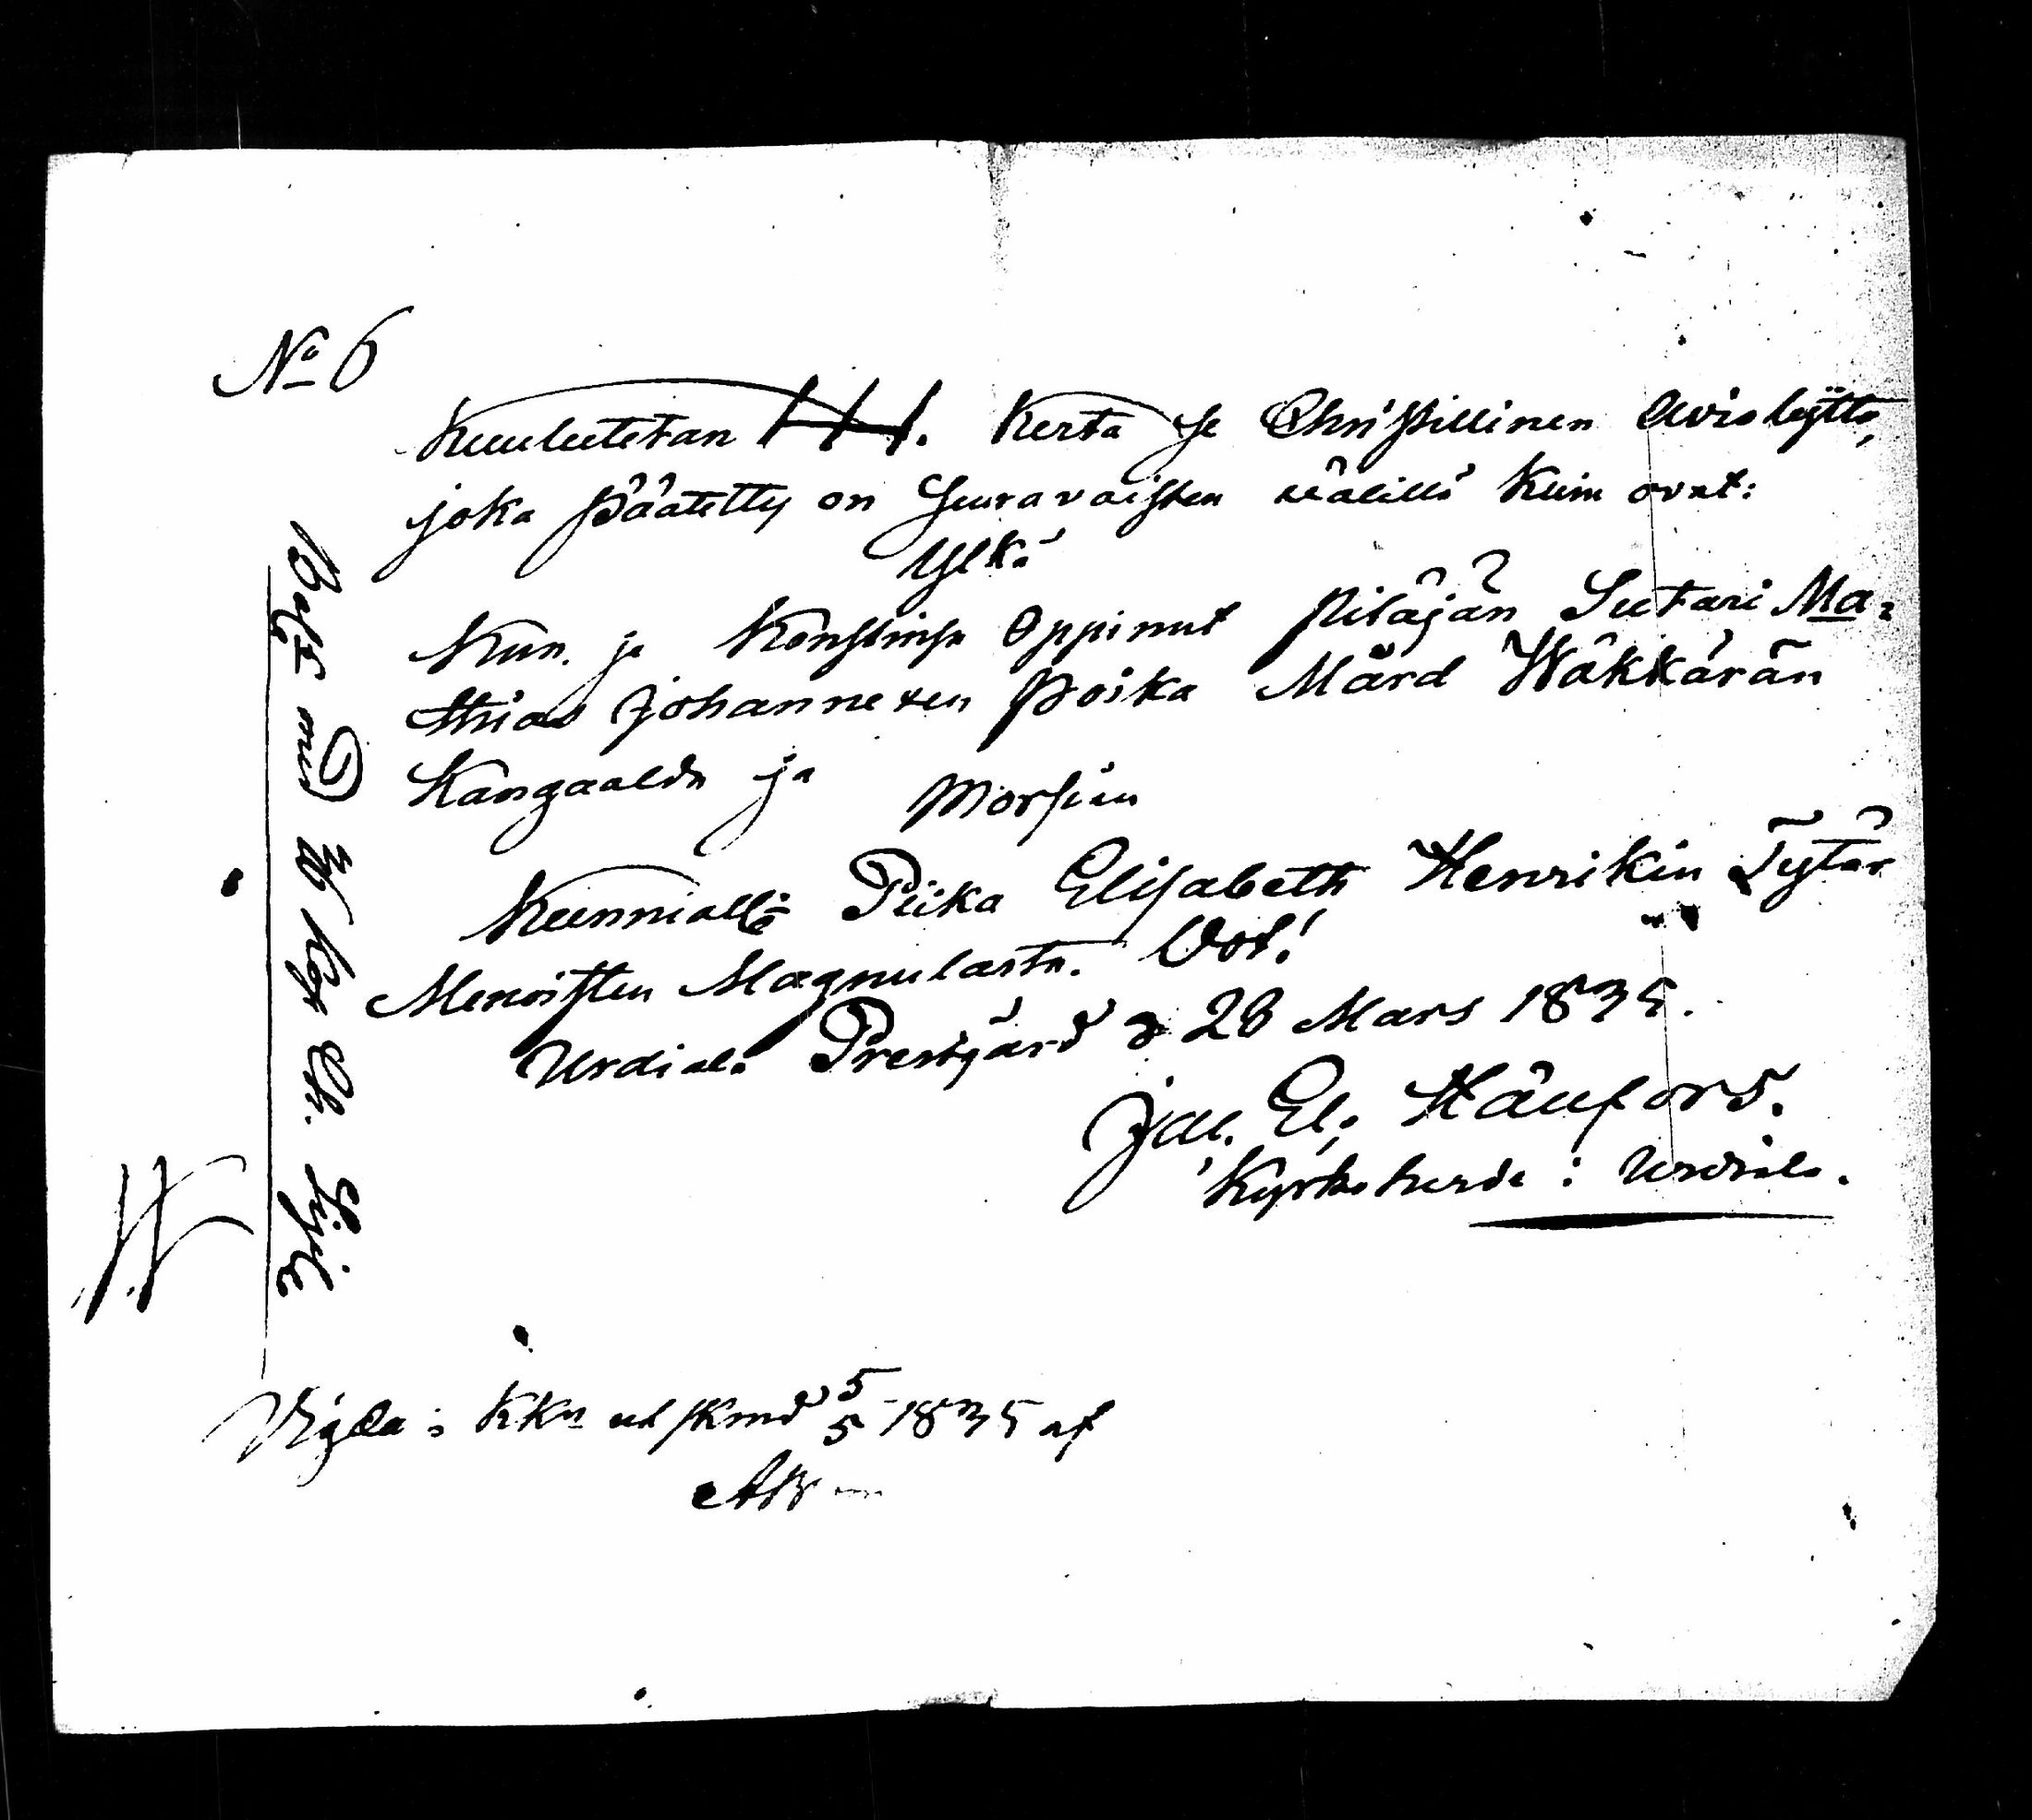 No 6
Kuulutetan III. Kerta se Christillinen Aviokäytto,
joka päätetty on Seuravaisten välillä Kuin ovat:
Ylkä
Kun. ja Konstinsa Oppinut Pitäjän Sutari Ma=
tthias Johannexen Poika Mård Wäkkärän
Kangaalda ja
Morsian
Kunniall: Piika Elisabeth Henrikin Tytär
Menoisten Magnulasta. Vot!
Urdiala Prestgård d 28 Mars 1835.
Jac. El.
Kyrkoherde i Urdiala.
Vigda i 5/5 1835 af